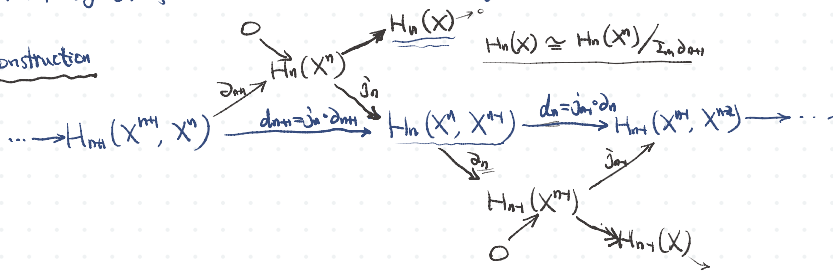 0
Hₙ(X) → 0
onstruction
Hₙ(Xⁿ)
Hₙ(X) ≅ Hₙ(Xⁿ)/Im ∂ₙ₊₁
∂ₙ₊₁
jₙ
··· → Hₙ₊₁(Xⁿ⁺¹, Xⁿ) dₙ₊₁=jₙ∘∂ₙ₊₁ Hₙ(Xⁿ, Xⁿ⁻¹) dₙ=jₙ₋₁∘∂ₙ Hₙ₋₁(Xⁿ⁻¹, Xⁿ⁻²) → ···
∂ₙ
jₙ₋₁
Hₙ₋₁(Xⁿ⁻¹)
0
Hₙ₋₁(X)